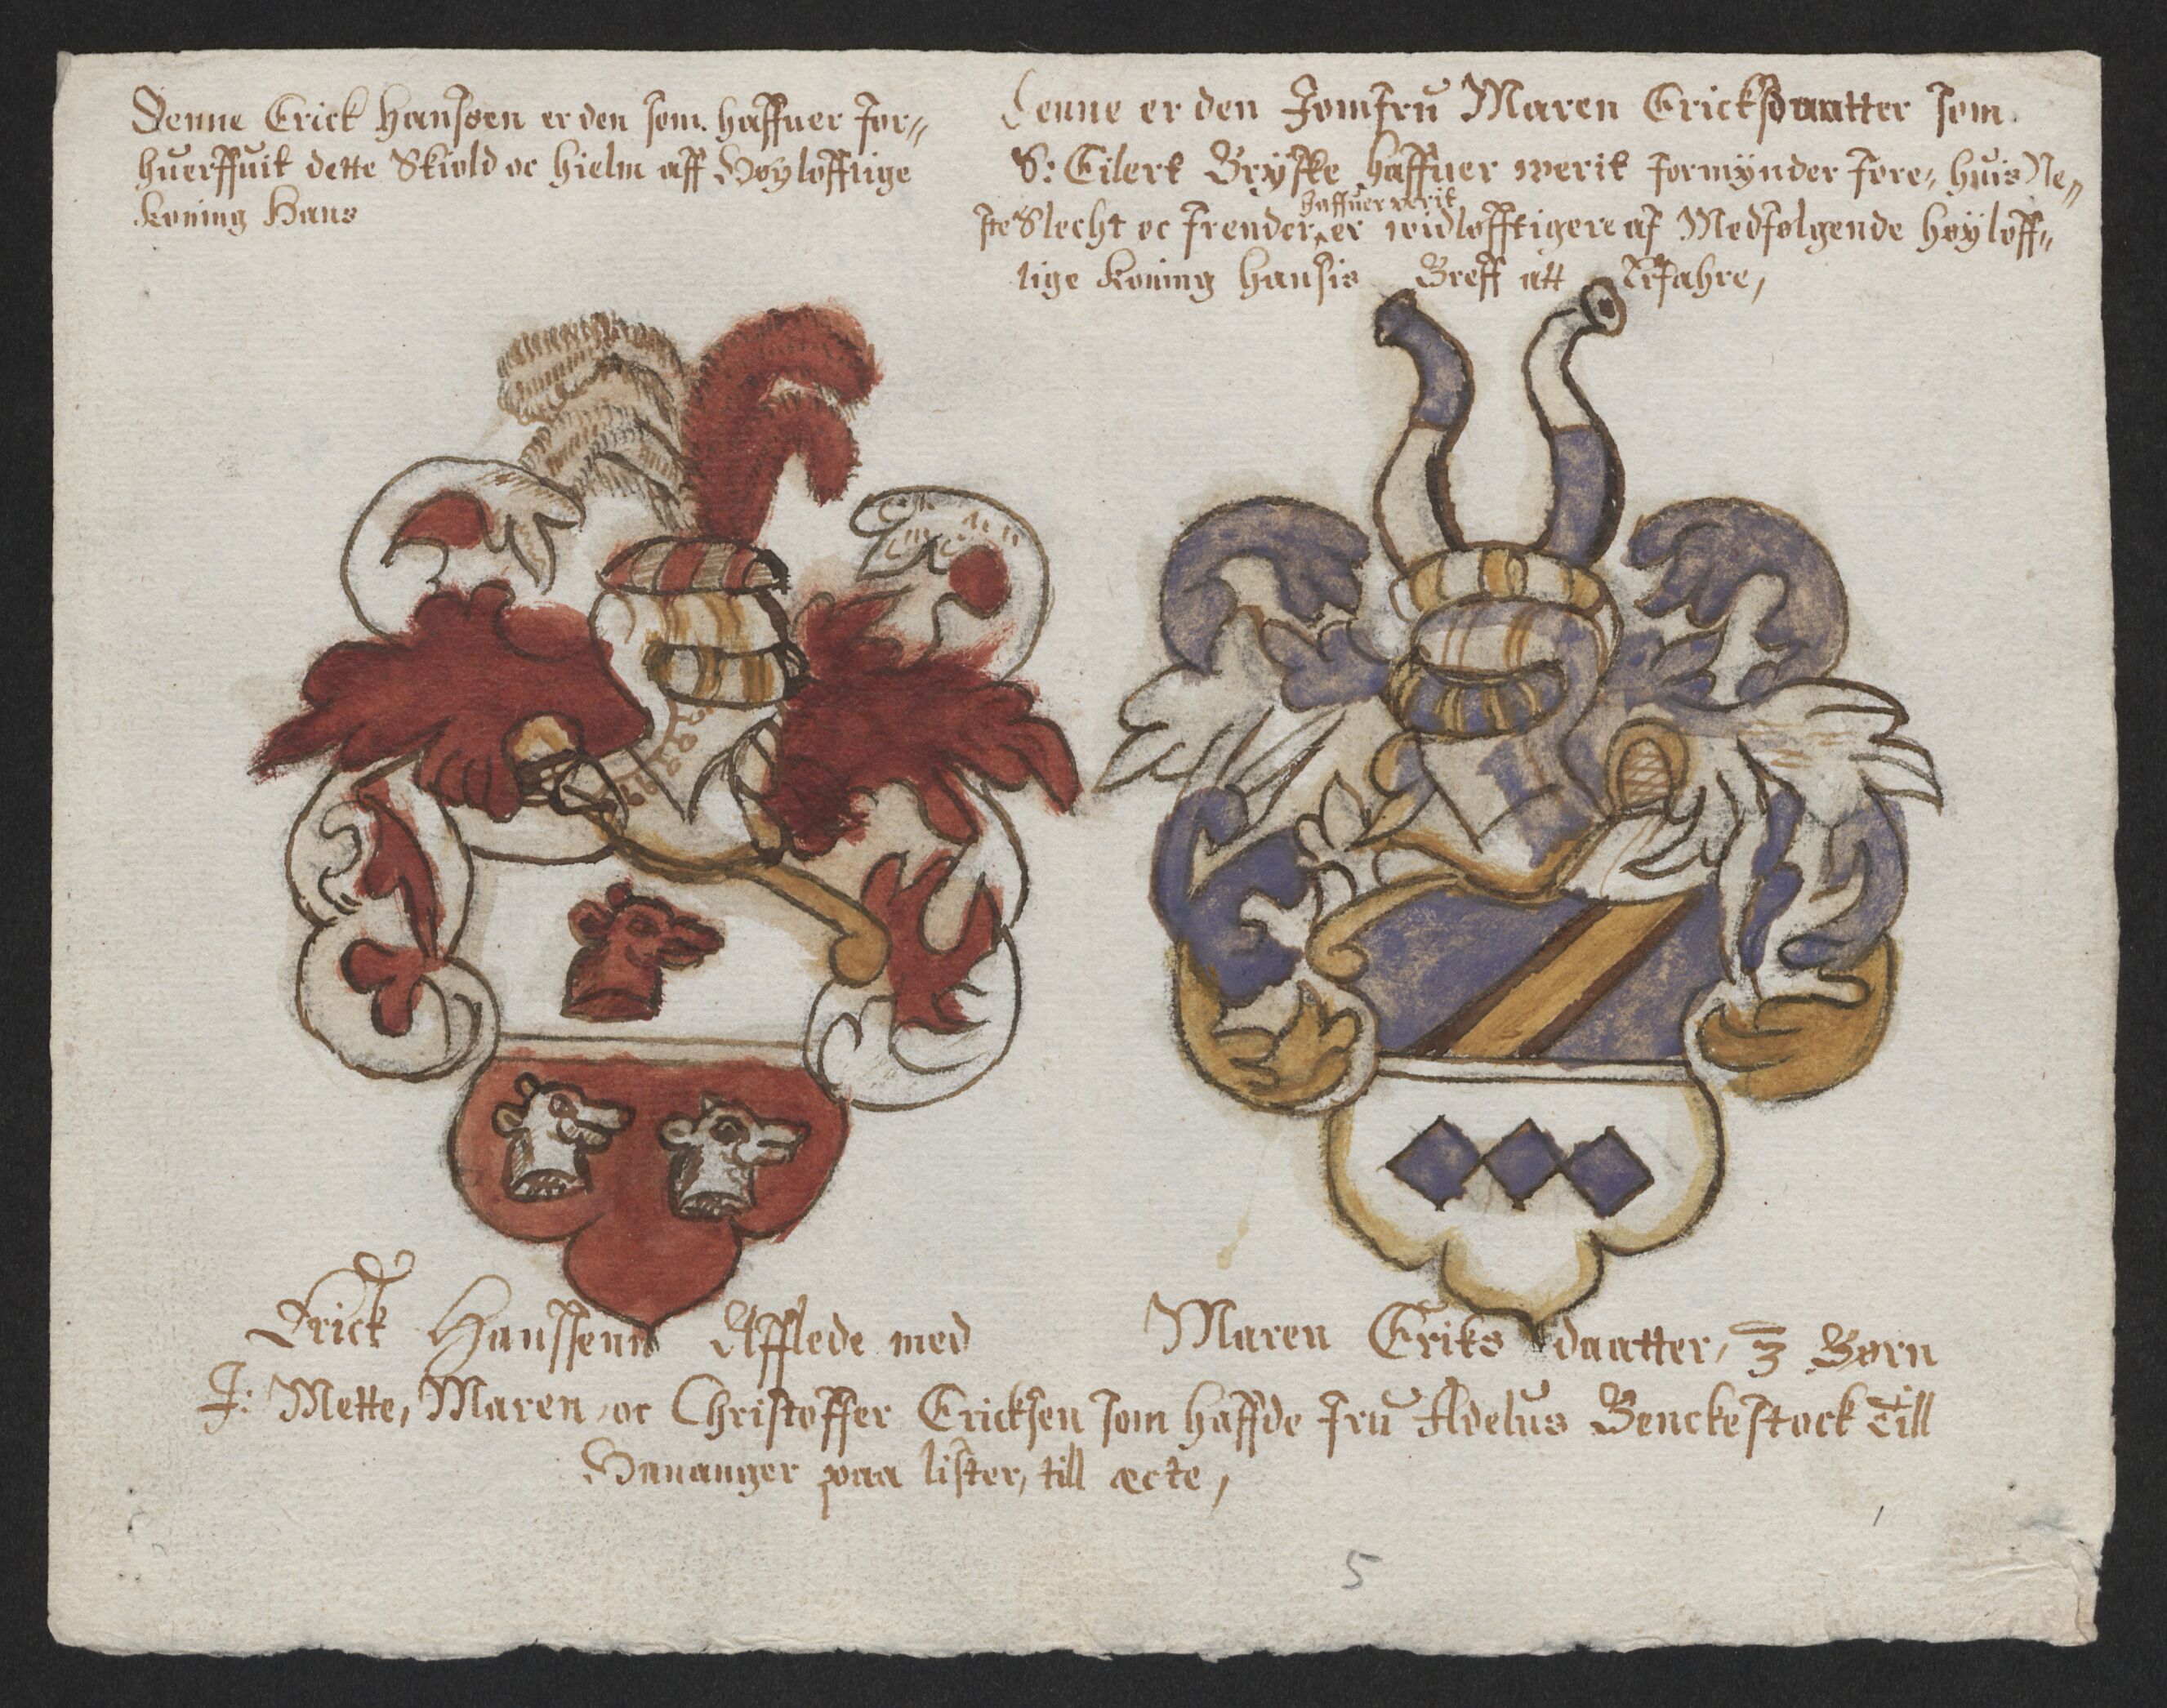 Denne Erick Hansøen er den som haffuer for=
huerffuit dette Skiold oc hielm aff Høylofflige
Koning Hans
Denne er den Jomfru Maren Ericksdaatter som
S: Eilert Bryske haffuer werit formynder fore, huis Ne=
ste Slecht oc frender haffuer werit er widløfftigere af Medfølgende høyloff=
lige Koning Hansis Breff att Erfahre,
Erick Hanssenn Afflede med
Maren Eriks daatter, 3 Børn
J: Mette, Maren, oc Christoffer Ericksen som haffde fru Adelus Benckestock till
Hananger paa lister, till ecte,
5